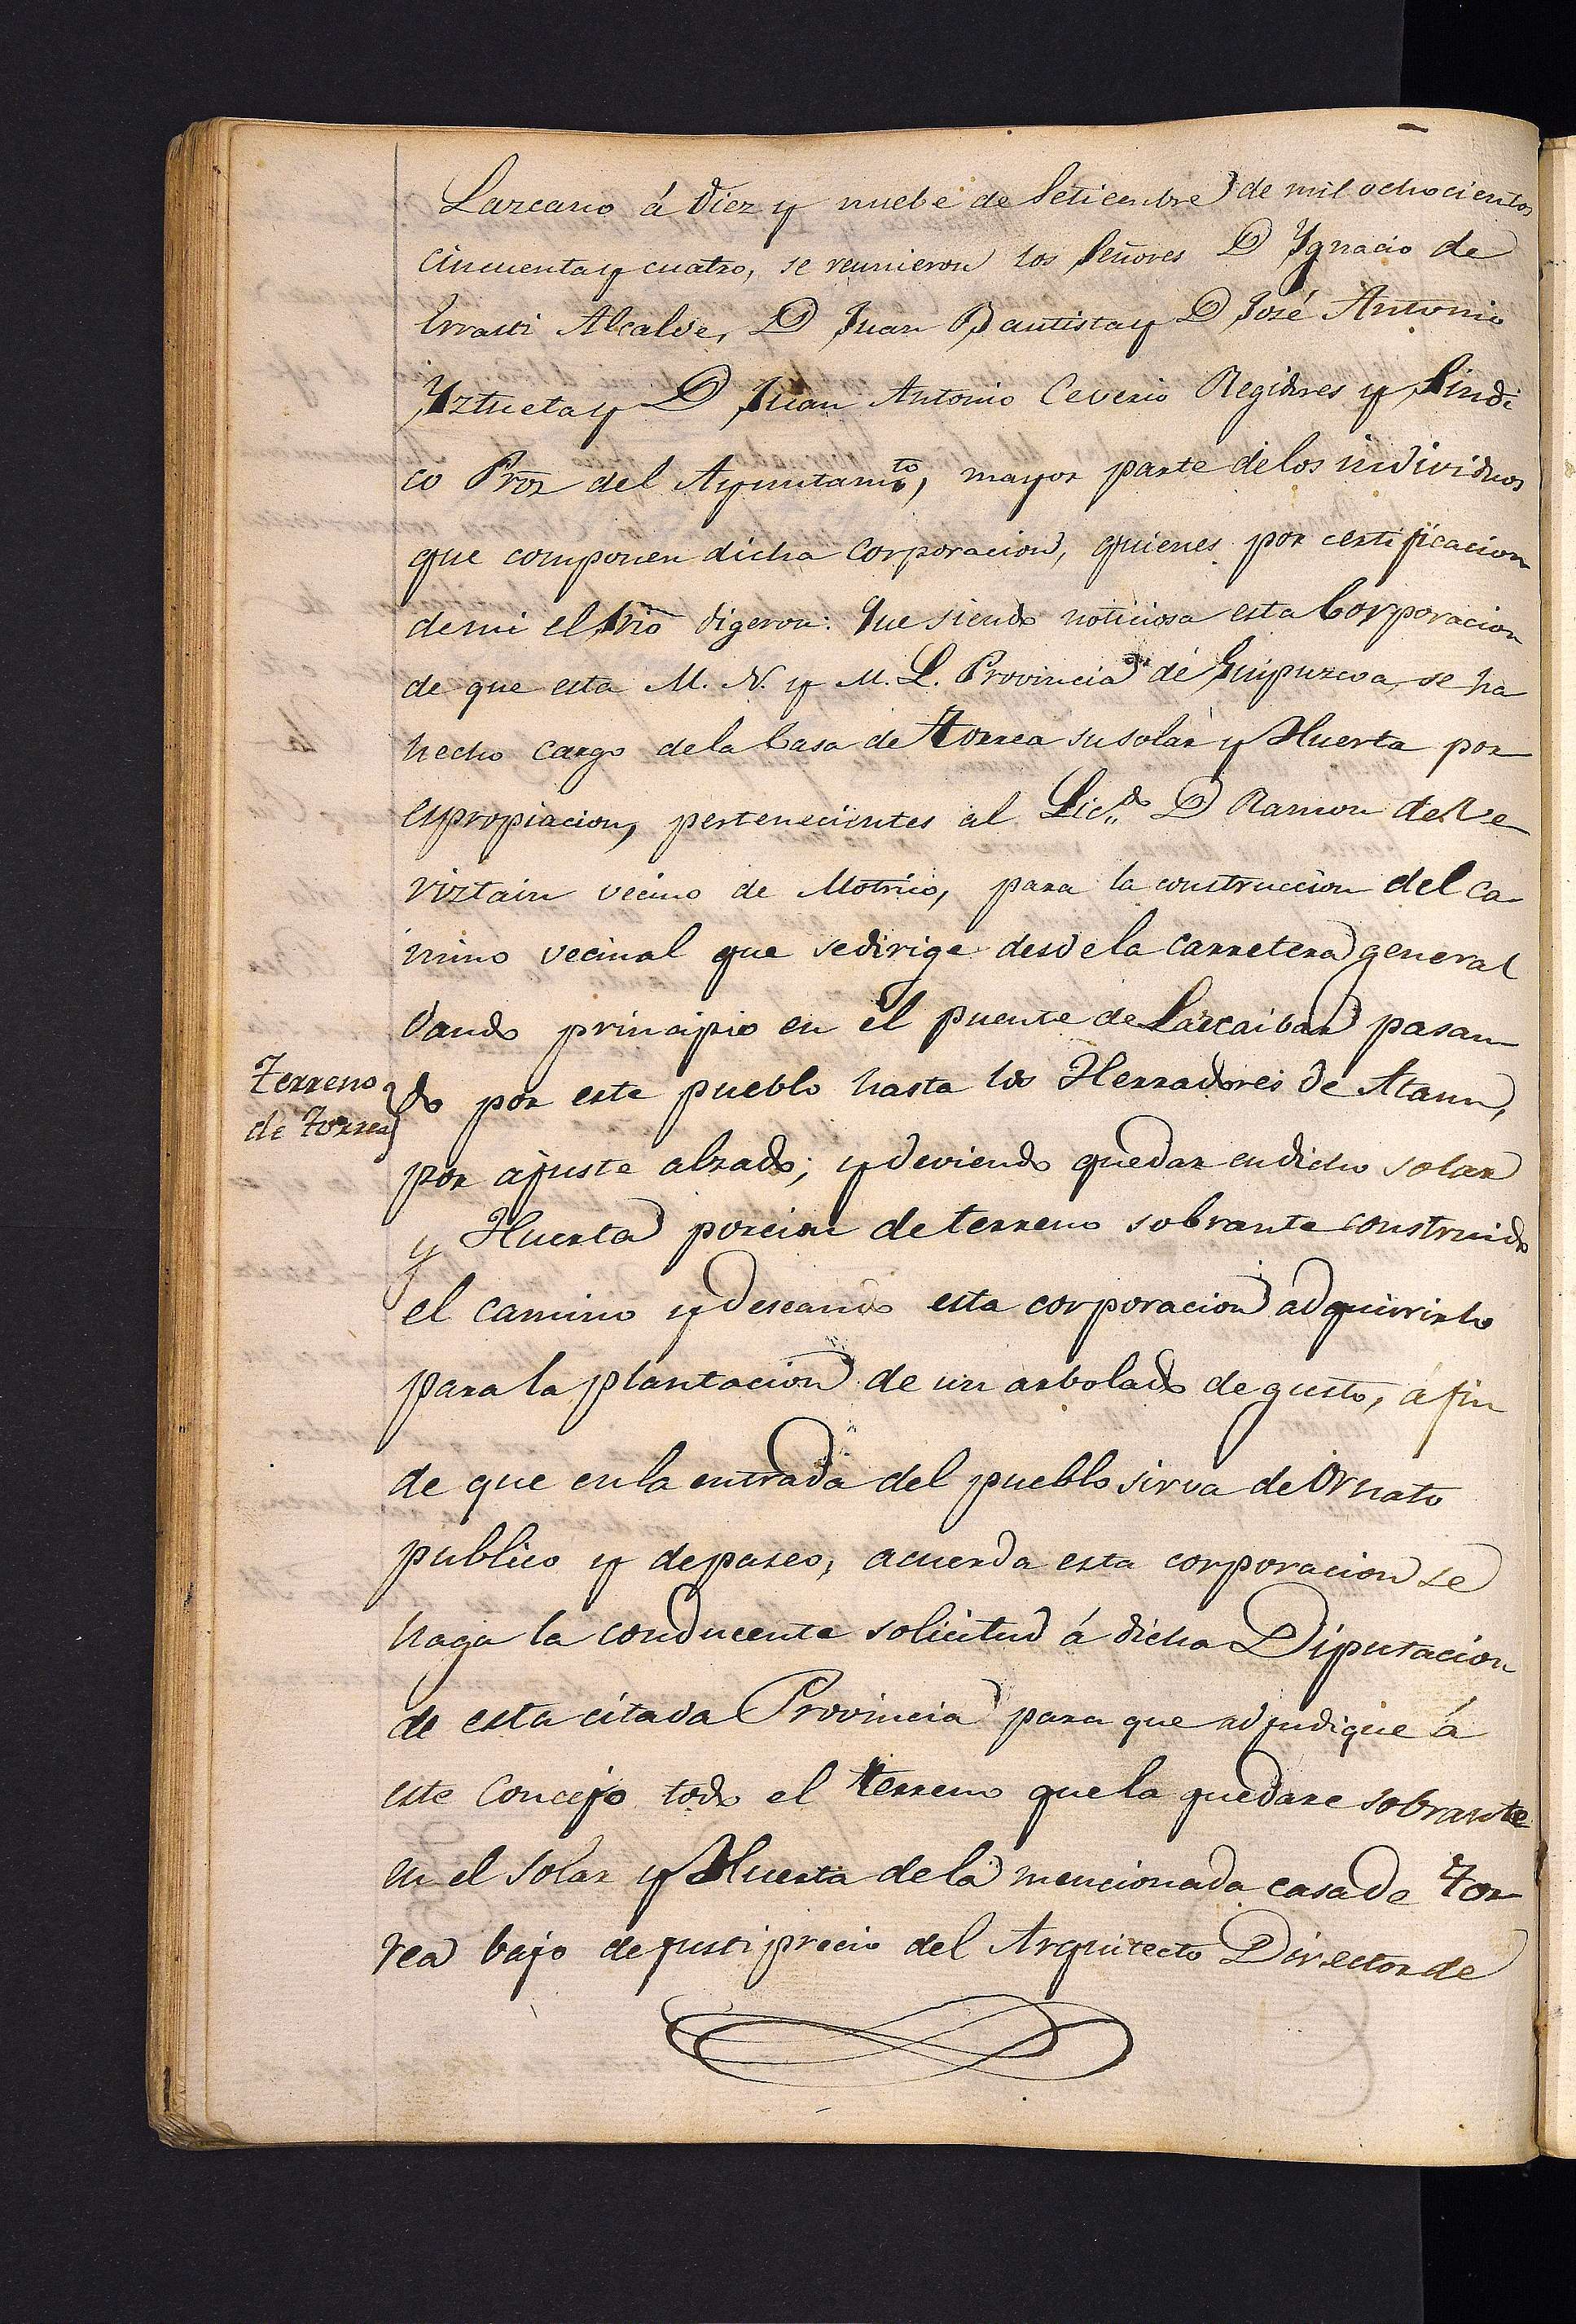 Lazcano á diez y nuebe de Setiembre de mil ochocientos
cincuenta y cuatro, se reunieron los Señores D Ygnacio de
Errasti Alcalde, D Juan Bautista y D José Antonio
Yztueta y D Juan Antonio Ceverio Regidores y Sindi
co Pror del Ayuntamto, mayor parte de los individuos
que componen dicha corporacion, quienes por certificacion
de mi el Srio digeron: Que siendo noticiosa esta Corporacion
de que esta M. N. y M. L. Provincia de Guipuzcoa, se ha
hecho cargo de la Casa de Torrea su solar y Huerta por
espropiacion, pertenecientes al Licdo D Ramon de
viztain vecino de Motrico, para la construccion del ca
mino vecinal que se dirige desde la carretera general
dando principio en el puente de Lazcaibar pasan
Terreno
de Torrea
do por este pueblo hasta los Herradores de Ataun,
por ajuste alzado; y deviendo quedar en dicho solar
y Huerta porcion de terreno sobrante construido
el camino y deseando esta corporacion adquirirlo
para la plantacion de un arbolado de gusto, á fin
de que en la entrada del pueblo sirva de Ornato
publico y de paseo, acuerda esta corporacion se
haga la conducente solicitud á dicha Diputacion
de esta citada Provincia para que adjudique á
este Concejo todo el terreno que la quedare sobrante
en el solar y Huerta de la mencionada casa de Tor
rea bajo de justiprecio del Arquitecto Director de